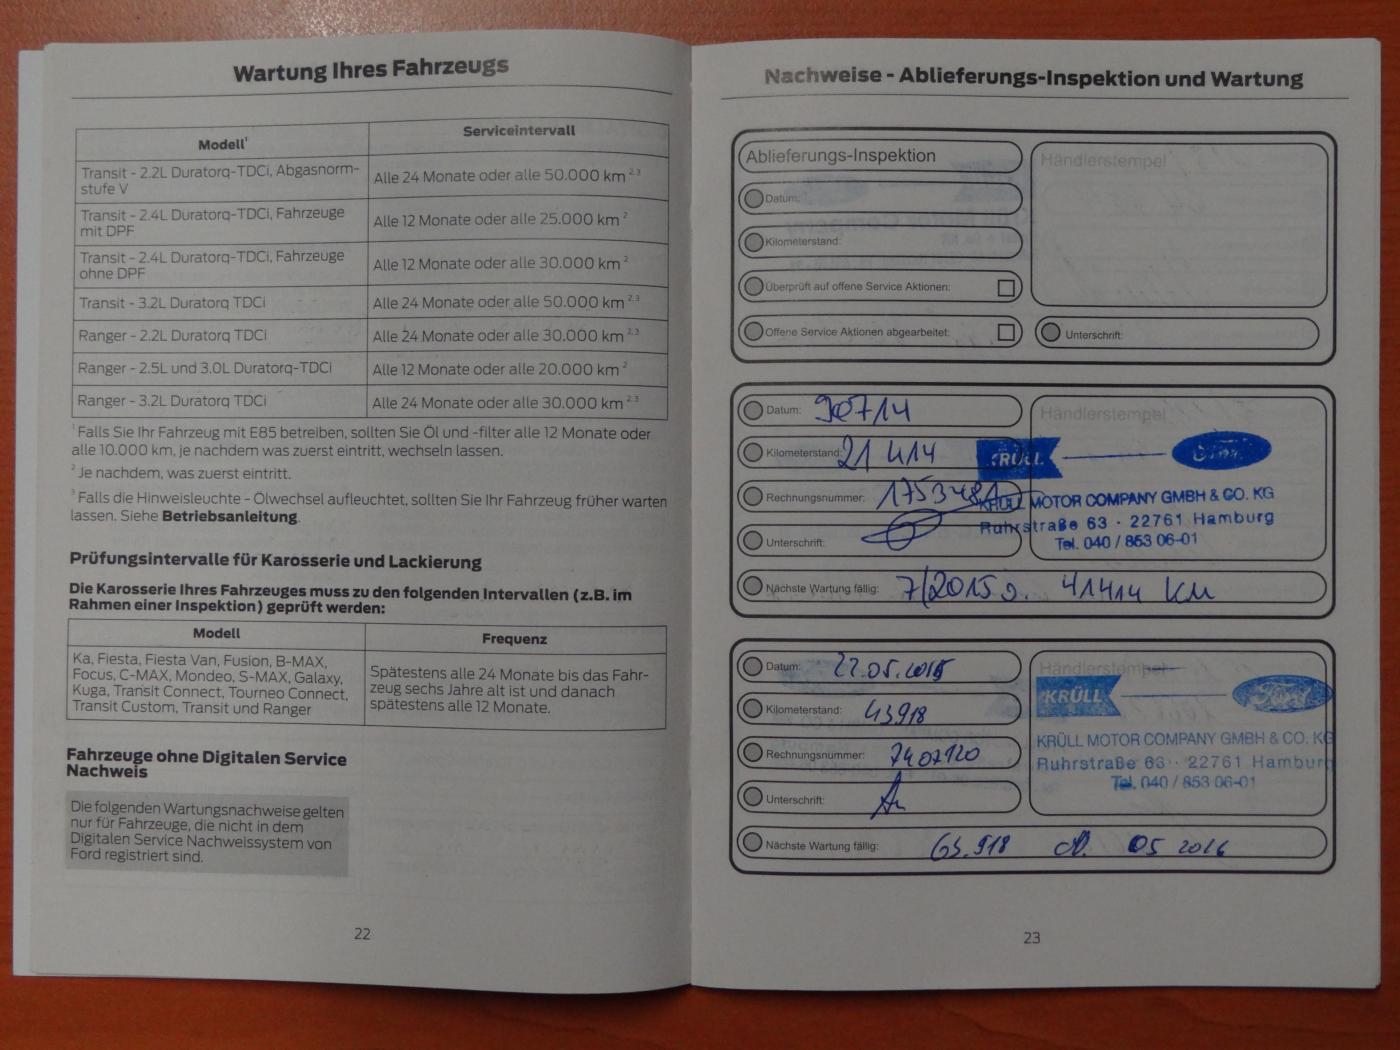 Wartung Ihres Fahrzeugs
Modell¹ Serviceintervall
Transit - 2.2L Duratorq-TDCi, Abgasnorm-
stufe V
Alle 24 Monate oder alle 50.000 km ²,³
Transit - 2.4L Duratorq-TDCi, Fahrzeuge
mit DPF
Alle 12 Monate oder alle 25.000 km ²
Transit - 2.4L Duratorq-TDCi, Fahrzeuge
ohne DPF
Alle 12 Monate oder alle 30.000 km ²
Transit - 3.2L Duratorq TDCi Alle 24 Monate oder alle 50.000 km ²,³
Ranger - 2.2L Duratorq TDCi Alle 24 Monate oder alle 30.000 km ²,³
Ranger - 2.5L und 3.0L Duratorq-TDCi Alle 12 Monate oder alle 20.000 km ²
Ranger - 3.2L Duratorq TDCi Alle 24 Monate oder alle 30.000 km ²,³
¹ Falls Sie Ihr Fahrzeug mit E85 betreiben, sollten Sie Öl und -filter alle 12 Monate oder
alle 10.000 km, je nachdem was zuerst eintritt, wechseln lassen.
² Je nachdem, was zuerst eintritt.
³ Falls die Hinweisleuchte - Ölwechsel aufleuchtet, sollten Sie Ihr Fahrzeug früher warten
lassen. Siehe Betriebsanleitung.
Prüfungsintervalle für Karosserie und Lackierung
Die Karosserie Ihres Fahrzeuges muss zu den folgenden Intervallen (z.B. im
Rahmen einer Inspektion) geprüft werden:
Modell Frequenz
Ka, Fiesta, Fiesta Van, Fusion, B-MAX,
Focus, C-MAX, Mondeo, S-MAX, Galaxy,
Kuga, Transit Connect, Tourneo Connect,
Transit Custom, Transit und Ranger
Spätestens alle 24 Monate bis das Fahr-
zeug sechs Jahre alt ist und danach
spätestens alle 12 Monate.
Fahrzeuge ohne Digitalen Service
Nachweis
Die folgenden Wartungsnachweise gelten
nur für Fahrzeuge, die nicht in dem
Digitalen Service Nachweissystem von
Ford registriert sind.
22
Nachweise - Ablieferungs-Inspektion und Wartung
Ablieferungs-Inspektion
Händlerstempel
Datum:
Kilometerstand:
Überprüft auf offene Service Aktionen:
Offene Service Aktionen abgearbeitet:
Unterschrift:
Datum:
Händlerstempel
Kilometerstand: 21 414
Rechnungsnummer: 1753481
Unterschrift:
KRÜLL Ford
KRÜLL MOTOR COMPANY GMBH & CO. KG
Ruhrstraße 63 · 22761 Hamburg
Tel. 040 / 853 06-01
Nächste Wartung fällig: 7/2015 o. 41414 KM
Datum: 22.05.2015
Händlerstempel
Kilometerstand: 43918
Rechnungsnummer: 7407120
Unterschrift:
KRÜLL Ford
KRÜLL MOTOR COMPANY GMBH & CO. KG
Ruhrstraße 63 · 22761 Hamburg
Tel. 040 / 853 06-01
Nächste Wartung fällig: 63.918 05 2016
23